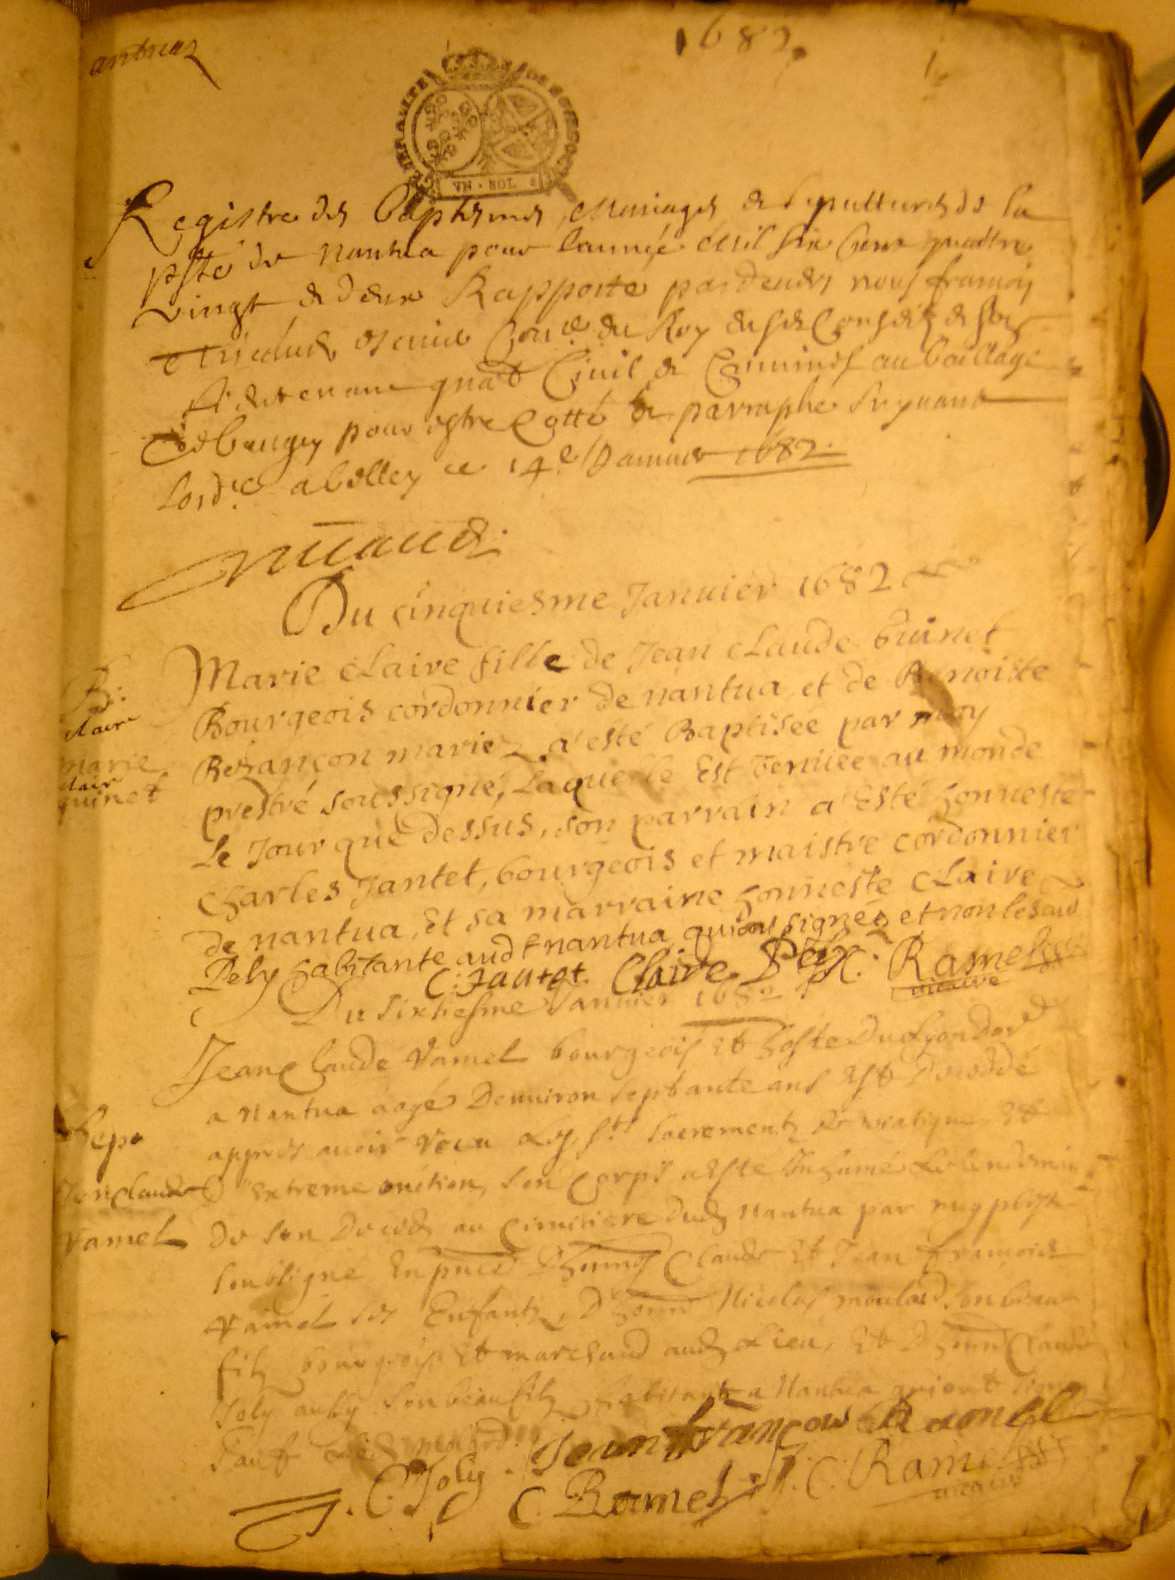 1682
GENERALITE DE BOURGOGNE
VN · SOL
Registre des baptesmes, mariages et sepultures de la
de Nantua pour l'année mil six cens quattre
vingt et deux Rapporté pardevant nous françois
du Roy
Lieutenant Civil et Criminel au bailliage
de beugey pour estre Cotté et parraphé suyvant
lord.ce a belley ce 14.e Janvier 1682
Du cinquiesme Janvier 1682
Marie claire fille de Jean claude Guinet
Bourgeois cordonnier de nantua et de Benoiste
Bezançon mariez a esté Baptisée par moy
prestre soussigné, Laquelle Est venuee au monde
Le Jour que dessus, son parrain a Esté honneste
Charles Jantet, bourgeois et maistre cordonnier
de nantua, et sa marraine honneste claire
Pely habitante aud.t nantua qui ont signéz et non lesd
B:
claire
marie
claire
guinet
C: Jantet Claire Pely C. Ramel
vicaire
Du sixiesme Janvier 1682
Jean Claude Ramel bourgeois et hoste du Lyon d'or
a Nantua aagé d'environ septante ans est décédé
appres avoir receu Les S.ts sacrements de viatique et
d'extreme onction, son Corps a esté Inhumé Le lendemain
de son décéds au Cimitiere dud Nantua par moy
soubsigné En pnce d'honn Claude et Jean François
Ramel ses Enfants, d'honn Nicolas son beau
filz bourgeois et marchand aud Lieu, et d'honn Claude
Joly aussy son beau filz habitants a Nantua qui ont signé
sauf
Sep.
Jean Claude
Ramel
C Joly Jean François Ramel
C Ramel J. C. Ramel
vicaire